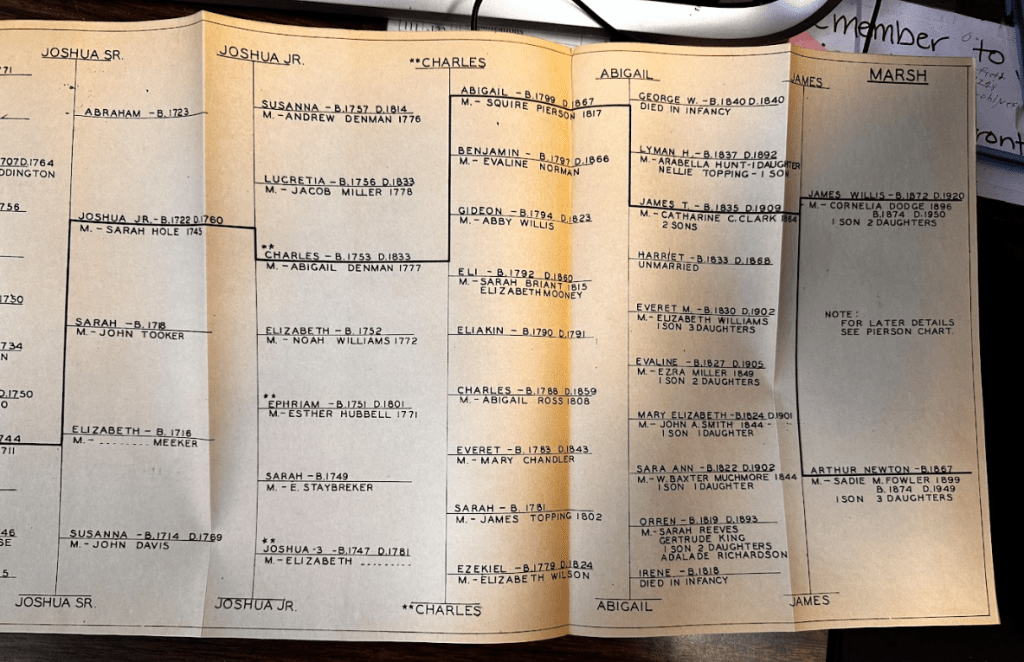 JOSHUA SR.
71
ABRAHAM - B.1723
707 D.1764
DDINGTON
756
JOSHUA JR.- B.1722 D.1760
M. - SARAH HOLE 1745
1730
SARAH - B.1718
M. - JOHN TOOKER
734
N
D.1750
O
ELIZABETH - B. 1716
M. - ........ MEEKER
744
711
SUSANNA - B.1714 D.1769
M. - JOHN DAVIS
46
SE
5
JOSHUA SR.
JOSHUA JR.
SUSANNA - B.1757 D.1814
M. - ANDREW DENMAN 1776
LUCRETIA - B.1756 D.1833
M. - JACOB MILLER 1778
**
CHARLES - B.1753 D.1833
M. - ABIGAIL DENMAN 1777
ELIZABETH - B. 1752
M. - NOAH WILLIAMS 1772
**
EPHRIAM - B.1751 D.1801
M. - ESTHER HUBBELL 1771
SARAH - B.1749
M. - E. STAYBREKER
**
JOSHUA -3 -B.1747 D.1781
M. - ELIZABETH ........
JOSHUA JR.
**CHARLES
ABIGAIL - B.1799 D.1867
M. - SQUIRE PIERSON 1817
BENJAMIN - B.1797 D.1866
M. - EVALINE NORMAN
GIDEON - B.1794 D.1823
M. - ABBY WILLIS
ELI - B.1792 D.1860
M. - SARAH BRIANT 1815
ELIZABETH MOONEY
ELIAKIN - B.1790 D.1791
CHARLES - B.1788 D.1859
M. - ABIGAIL ROSS 1808
EVERET - B.1783 D.1843
M. - MARY CHANDLER
SARAH - B. 1781
M. - JAMES TOPPING 1802
EZEKIEL - B.1779 D.1824
M. - ELIZABETH WILSON
**CHARLES
ABIGAIL
GEORGE W. - B.1840 D.1840
DIED IN INFANCY
LYMAN H. - B.1837 D.1892
M. - ARABELLA HUNT - 1 DAUGHTER
NELLIE TOPPING - 1 SON
JAMES T. - B.1835 D.1909
M. - CATHARINE C. CLARK 1864
2 SONS
HARRIET - B.1833 D.1868
UNMARRIED
EVERET M. - B.1830 D.1902
M. - ELIZABETH WILLIAMS
1 SON 3 DAUGHTERS
EVALINE - B.1827 D.1905
M. - EZRA MILLER 1849
1 SON 2 DAUGHTERS
MARY ELIZABETH - B.1824 D.1901
M. - JOHN A. SMITH 1844 -
1 SON 1 DAUGHTER
SARA ANN - B.1822 D.1902
M. - W. BAXTER MUCHMORE 1844
1 SON 1 DAUGHTER
ORREN - B.1819 D.1893
M. - SARAH REEVES
GERTRUDE KING
1 SON 2 DAUGHTERS
ADALADE RICHARDSON
IRENE - B.1818
DIED IN INFANCY
ABIGAIL
JAMES
MARSH
JAMES WILLIS - B.1872 D.1920
M. - CORNELIA DODGE 1896
B.1874 D.1950
1 SON 2 DAUGHTERS
NOTE:
FOR LATER DETAILS
SEE PIERSON CHART.
ARTHUR NEWTON - B.1867
M. - SADIE M. FOWLER 1899
B. 1874 D.1949
1 SON 3 DAUGHTERS
JAMES
emember to
ront